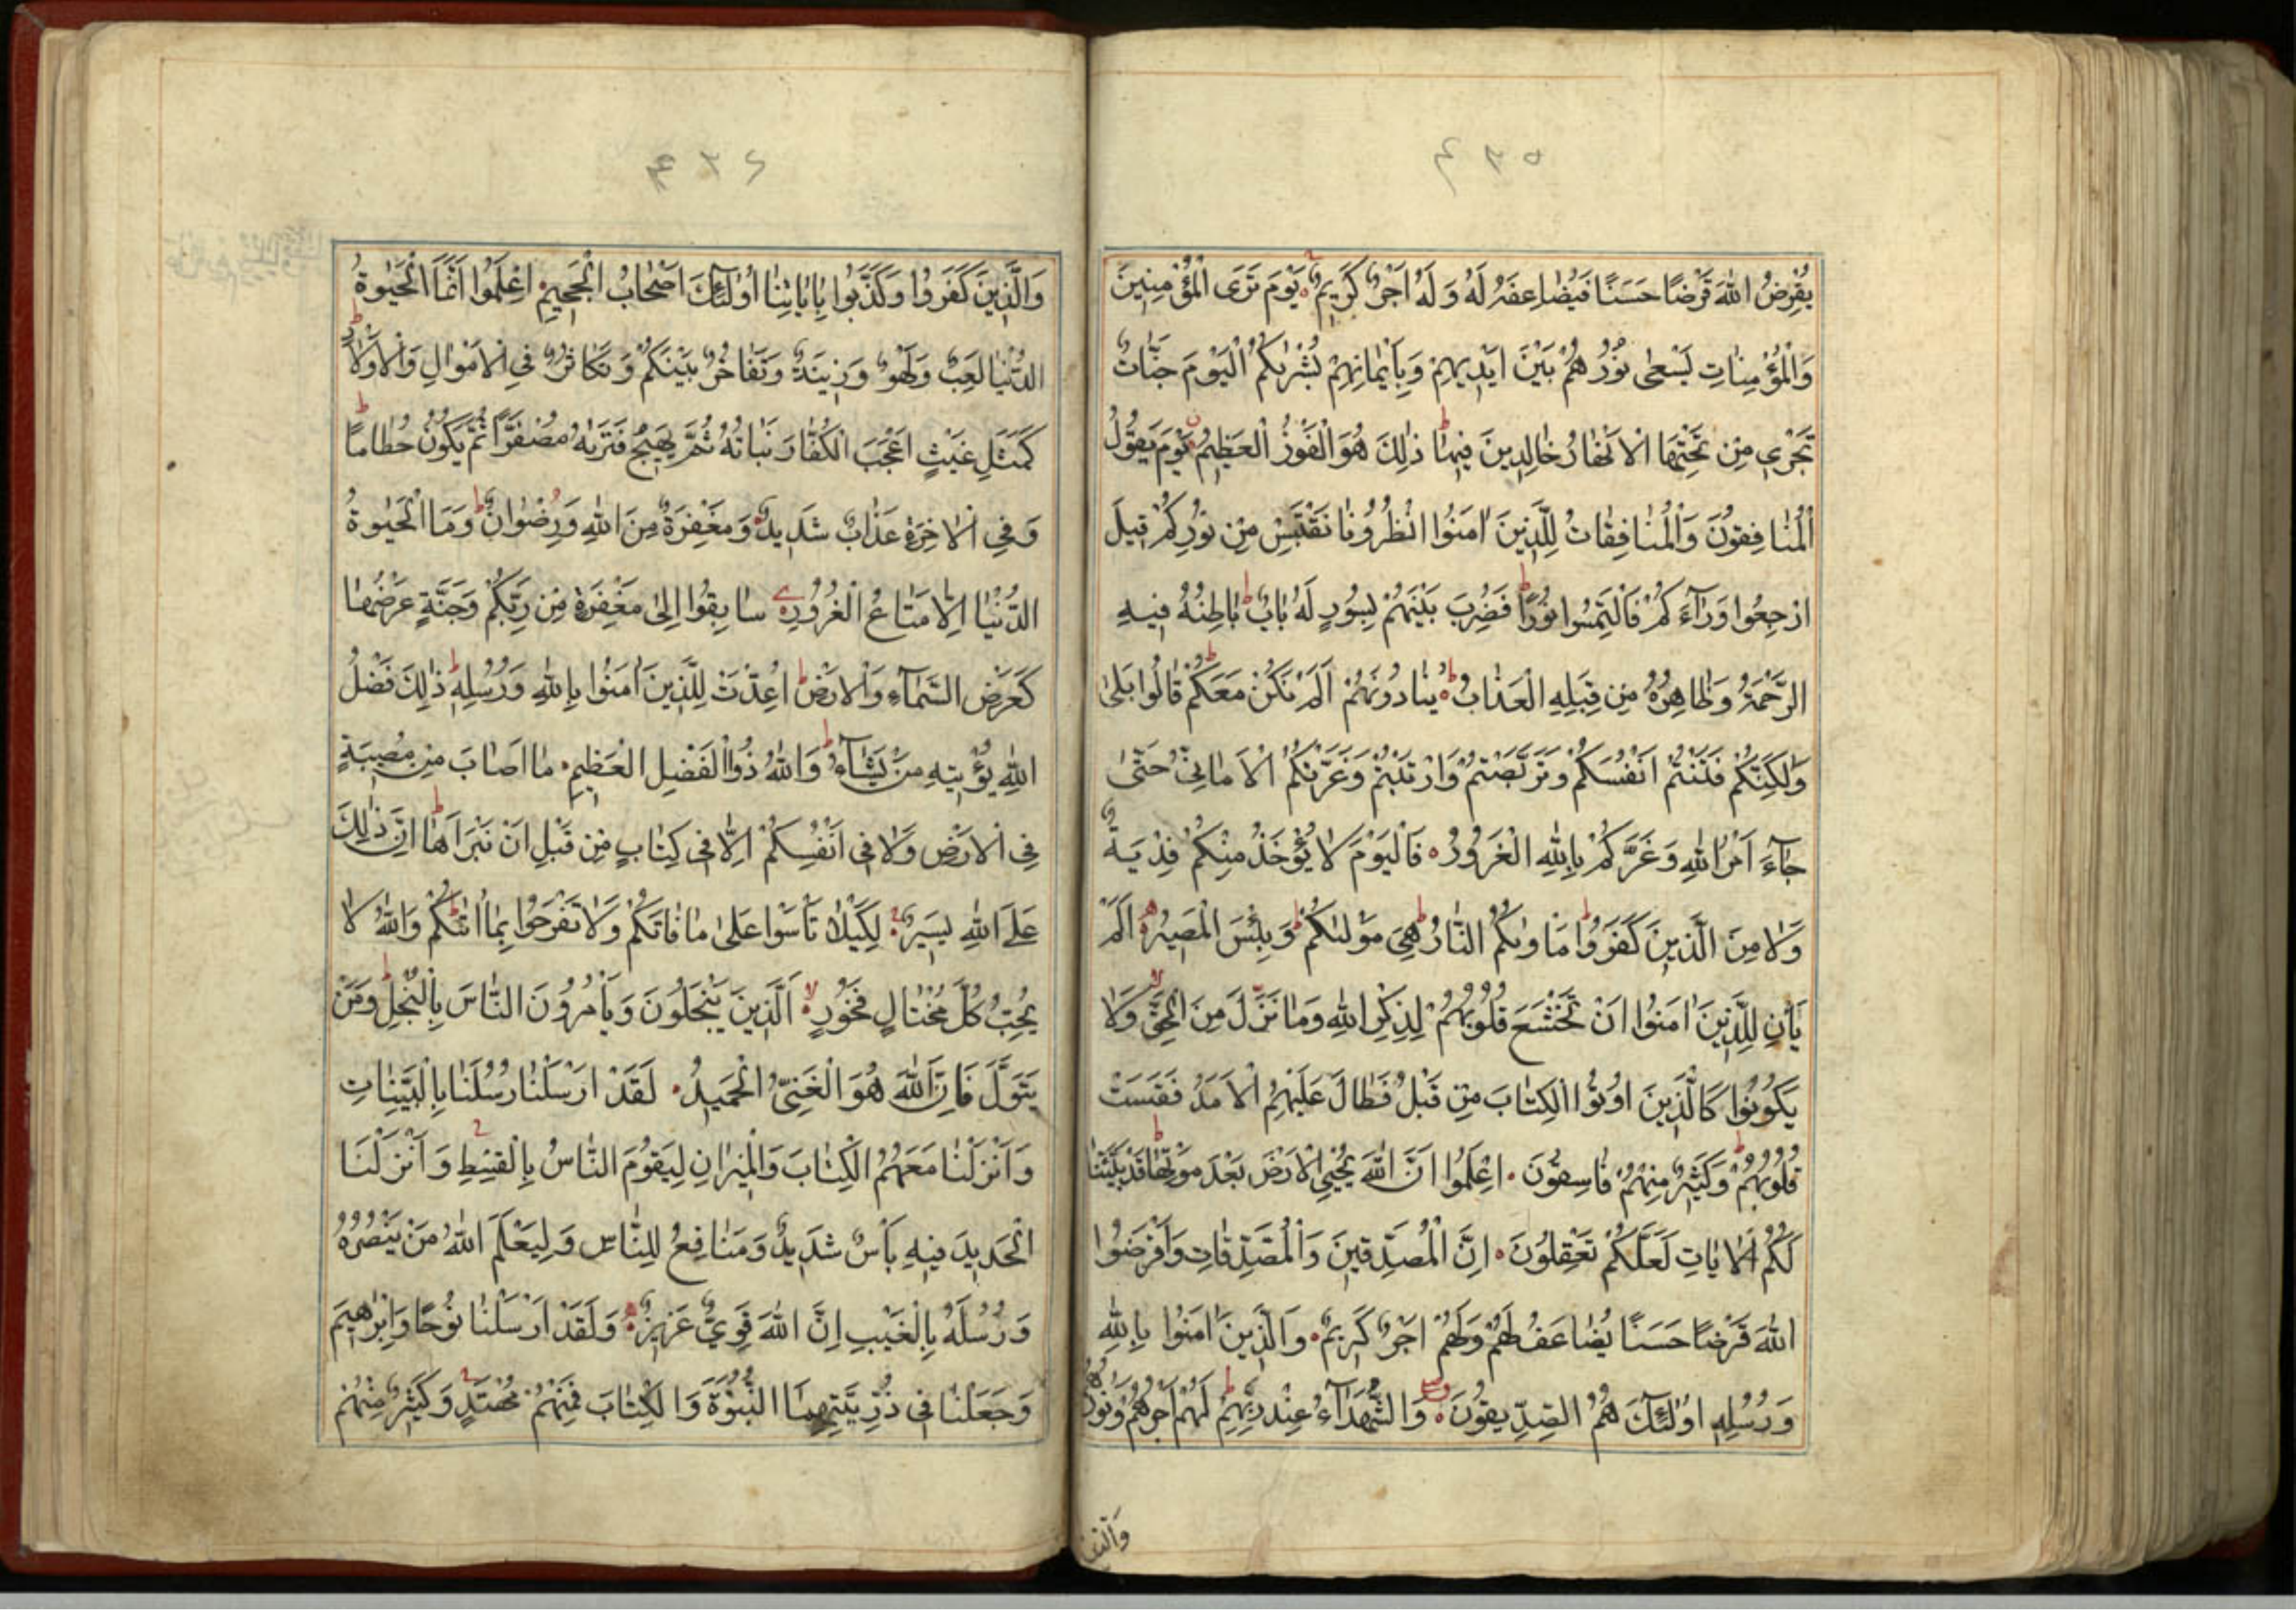 ٤٣٥
يُقْرِضُ اللهَ قَرْضًا حَسَنًا فَيُضَاعِفَهُ لَهُ وَلَهُ اَجْرٌ كَرِيمٌ يَوْمَ تَرَى الْمُؤْمِنِينَ
وَالْمُؤْمِنَاتِ يَسْعٰى نُورُهُمْ بَيْنَ اَيْدِيهِمْ وَبِاَيْمَانِهِمْ بُشْرٰيكُمُ الْيَوْمَ جَنَّاتٌ
تَجْرِي مِنْ تَحْتِهَا الْاَنْهَارُ خَالِدِينَ فِيهَا ذٰلِكَ هُوَ الْفَوْزُ الْعَظِيمُ يَوْمَ يَقُولُ
الْمُنَافِقُونَ وَالْمُنَافِقَاتُ لِلَّذِينَ اٰمَنُوا انْظُرُونَا نَقْتَبِسْ مِنْ نُورِكُمْ قِيلَ
ارْجِعُوا وَرَآءَكُمْ فَالْتَمِسُوا نُورًا فَضُرِبَ بَيْنَهُمْ بِسُورٍ لَهُ بَابٌ بَاطِنُهُ فِيهِ
الرَّحْمَةُ وَظَاهِرُهُ مِنْ قِبَلِهِ الْعَذَابُ يُنَادُونَهُمْ اَلَمْ نَكُنْ مَعَكُمْ قَالُوا بَلٰى
وَلٰكِنَّكُمْ فَتَنْتُمْ اَنْفُسَكُمْ وَتَرَبَّصْتُمْ وَارْتَبْتُمْ وَغَرَّتْكُمُ الْاَمَانِيُّ حَتّٰى
جَآءَ اَمْرُ اللهِ وَغَرَّكُمْ بِاللهِ الْغَرُورُ فَالْيَوْمَ لَا يُؤْخَذُ مِنْكُمْ فِدْيَةٌ
وَلَا مِنَ الَّذِينَ كَفَرُوا مَاْوٰيكُمُ النَّارُ هِيَ مَوْلٰيكُمْ وَبِئْسَ الْمَصِيرُ اَلَمْ
يَاْنِ لِلَّذِينَ اٰمَنُوا اَنْ تَخْشَعَ قُلُوبُهُمْ لِذِكْرِ اللهِ وَمَا نَزَّلَ مِنَ الْحَقِّ وَلَا
يَكُونُوا كَالَّذِينَ اُوتُوا الْكِتَابَ مِنْ قَبْلُ فَطَالَ عَلَيْهِمُ الْاَمَدُ فَقَسَتْ
قُلُوبُهُمْ وَكَثِيرٌ مِنْهُمْ فَاسِقُونَ اِعْلَمُوا اَنَّ اللهَ يُحْيِي الْاَرْضَ بَعْدَ مَوْتِهَا قَدْ بَيَّنَّا
لَكُمُ الْاٰيَاتِ لَعَلَّكُمْ تَعْقِلُونَ اِنَّ الْمُصَّدِّقِينَ وَالْمُصَّدِّقَاتِ وَاَقْرَضُوا
اللهَ قَرْضًا حَسَنًا يُضَاعَفُ لَهُمْ وَلَهُمْ اَجْرٌ كَرِيمٌ وَالَّذِينَ اٰمَنُوا بِاللهِ
وَرُسُلِهِ اُولٰئِكَ هُمُ الصِّدِّيقُونَ وَالشُّهَدَآءُ عِنْدَ رَبِّهِمْ لَهُمْ اَجْرُهُمْ وَنُورُهُمْ
وَالَّذِينَ
٤٣٦
وَالَّذِينَ كَفَرُوا وَكَذَّبُوا بِاٰيَاتِنَا اُولٰئِكَ اَصْحَابُ الْجَحِيمِ اِعْلَمُوا اَنَّمَا الْحَيٰوةُ
الدُّنْيَا لَعِبٌ وَلَهْوٌ وَزِينَةٌ وَتَفَاخُرٌ بَيْنَكُمْ وَتَكَاثُرٌ فِي الْاَمْوَالِ وَالْاَوْلَادِ
كَمَثَلِ غَيْثٍ اَعْجَبَ الْكُفَّارَ نَبَاتُهُ ثُمَّ يَهِيجُ فَتَرٰيهُ مُصْفَرًّا ثُمَّ يَكُونُ حُطَامًا
وَفِي الْاٰخِرَةِ عَذَابٌ شَدِيدٌ وَمَغْفِرَةٌ مِنَ اللهِ وَرِضْوَانٌ وَمَا الْحَيٰوةُ
الدُّنْيَا اِلَّا مَتَاعُ الْغُرُورِ سَابِقُوا اِلٰى مَغْفِرَةٍ مِنْ رَبِّكُمْ وَجَنَّةٍ عَرْضُهَا
كَعَرْضِ السَّمَآءِ وَالْاَرْضِ اُعِدَّتْ لِلَّذِينَ اٰمَنُوا بِاللهِ وَرُسُلِهِ ذٰلِكَ فَضْلُ
اللهِ يُؤْتِيهِ مَنْ يَشَآءُ وَاللهُ ذُو الْفَضْلِ الْعَظِيمِ مَا اَصَابَ مِنْ مُصِيبَةٍ
فِي الْاَرْضِ وَلَا فِي اَنْفُسِكُمْ اِلَّا فِي كِتَابٍ مِنْ قَبْلِ اَنْ نَبْرَاَهَا اِنَّ ذٰلِكَ
عَلَى اللهِ يَسِيرٌ لِكَيْلَا تَاْسَوْا عَلٰى مَا فَاتَكُمْ وَلَا تَفْرَحُوا بِمَا اٰتٰيكُمْ وَاللهُ لَا
يُحِبُّ كُلَّ مُخْتَالٍ فَخُورٍ اَلَّذِينَ يَبْخَلُونَ وَيَاْمُرُونَ النَّاسَ بِالْبُخْلِ وَمَنْ
يَتَوَلَّ فَاِنَّ اللهَ هُوَ الْغَنِيُّ الْحَمِيدُ لَقَدْ اَرْسَلْنَا رُسُلَنَا بِالْبَيِّنَاتِ
وَاَنْزَلْنَا مَعَهُمُ الْكِتَابَ وَالْمِيزَانَ لِيَقُومَ النَّاسُ بِالْقِسْطِ وَاَنْزَلْنَا
الْحَدِيدَ فِيهِ بَاْسٌ شَدِيدٌ وَمَنَافِعُ لِلنَّاسِ وَلِيَعْلَمَ اللهُ مَنْ يَنْصُرُهُ
وَرُسُلَهُ بِالْغَيْبِ اِنَّ اللهَ قَوِيٌّ عَزِيزٌ وَلَقَدْ اَرْسَلْنَا نُوحًا وَاِبْرٰهِيمَ
وَجَعَلْنَا فِي ذُرِّيَّتِهِمَا النُّبُوَّةَ وَالْكِتَابَ فَمِنْهُمْ مُهْتَدٍ وَكَثِيرٌ مِنْهُمْ